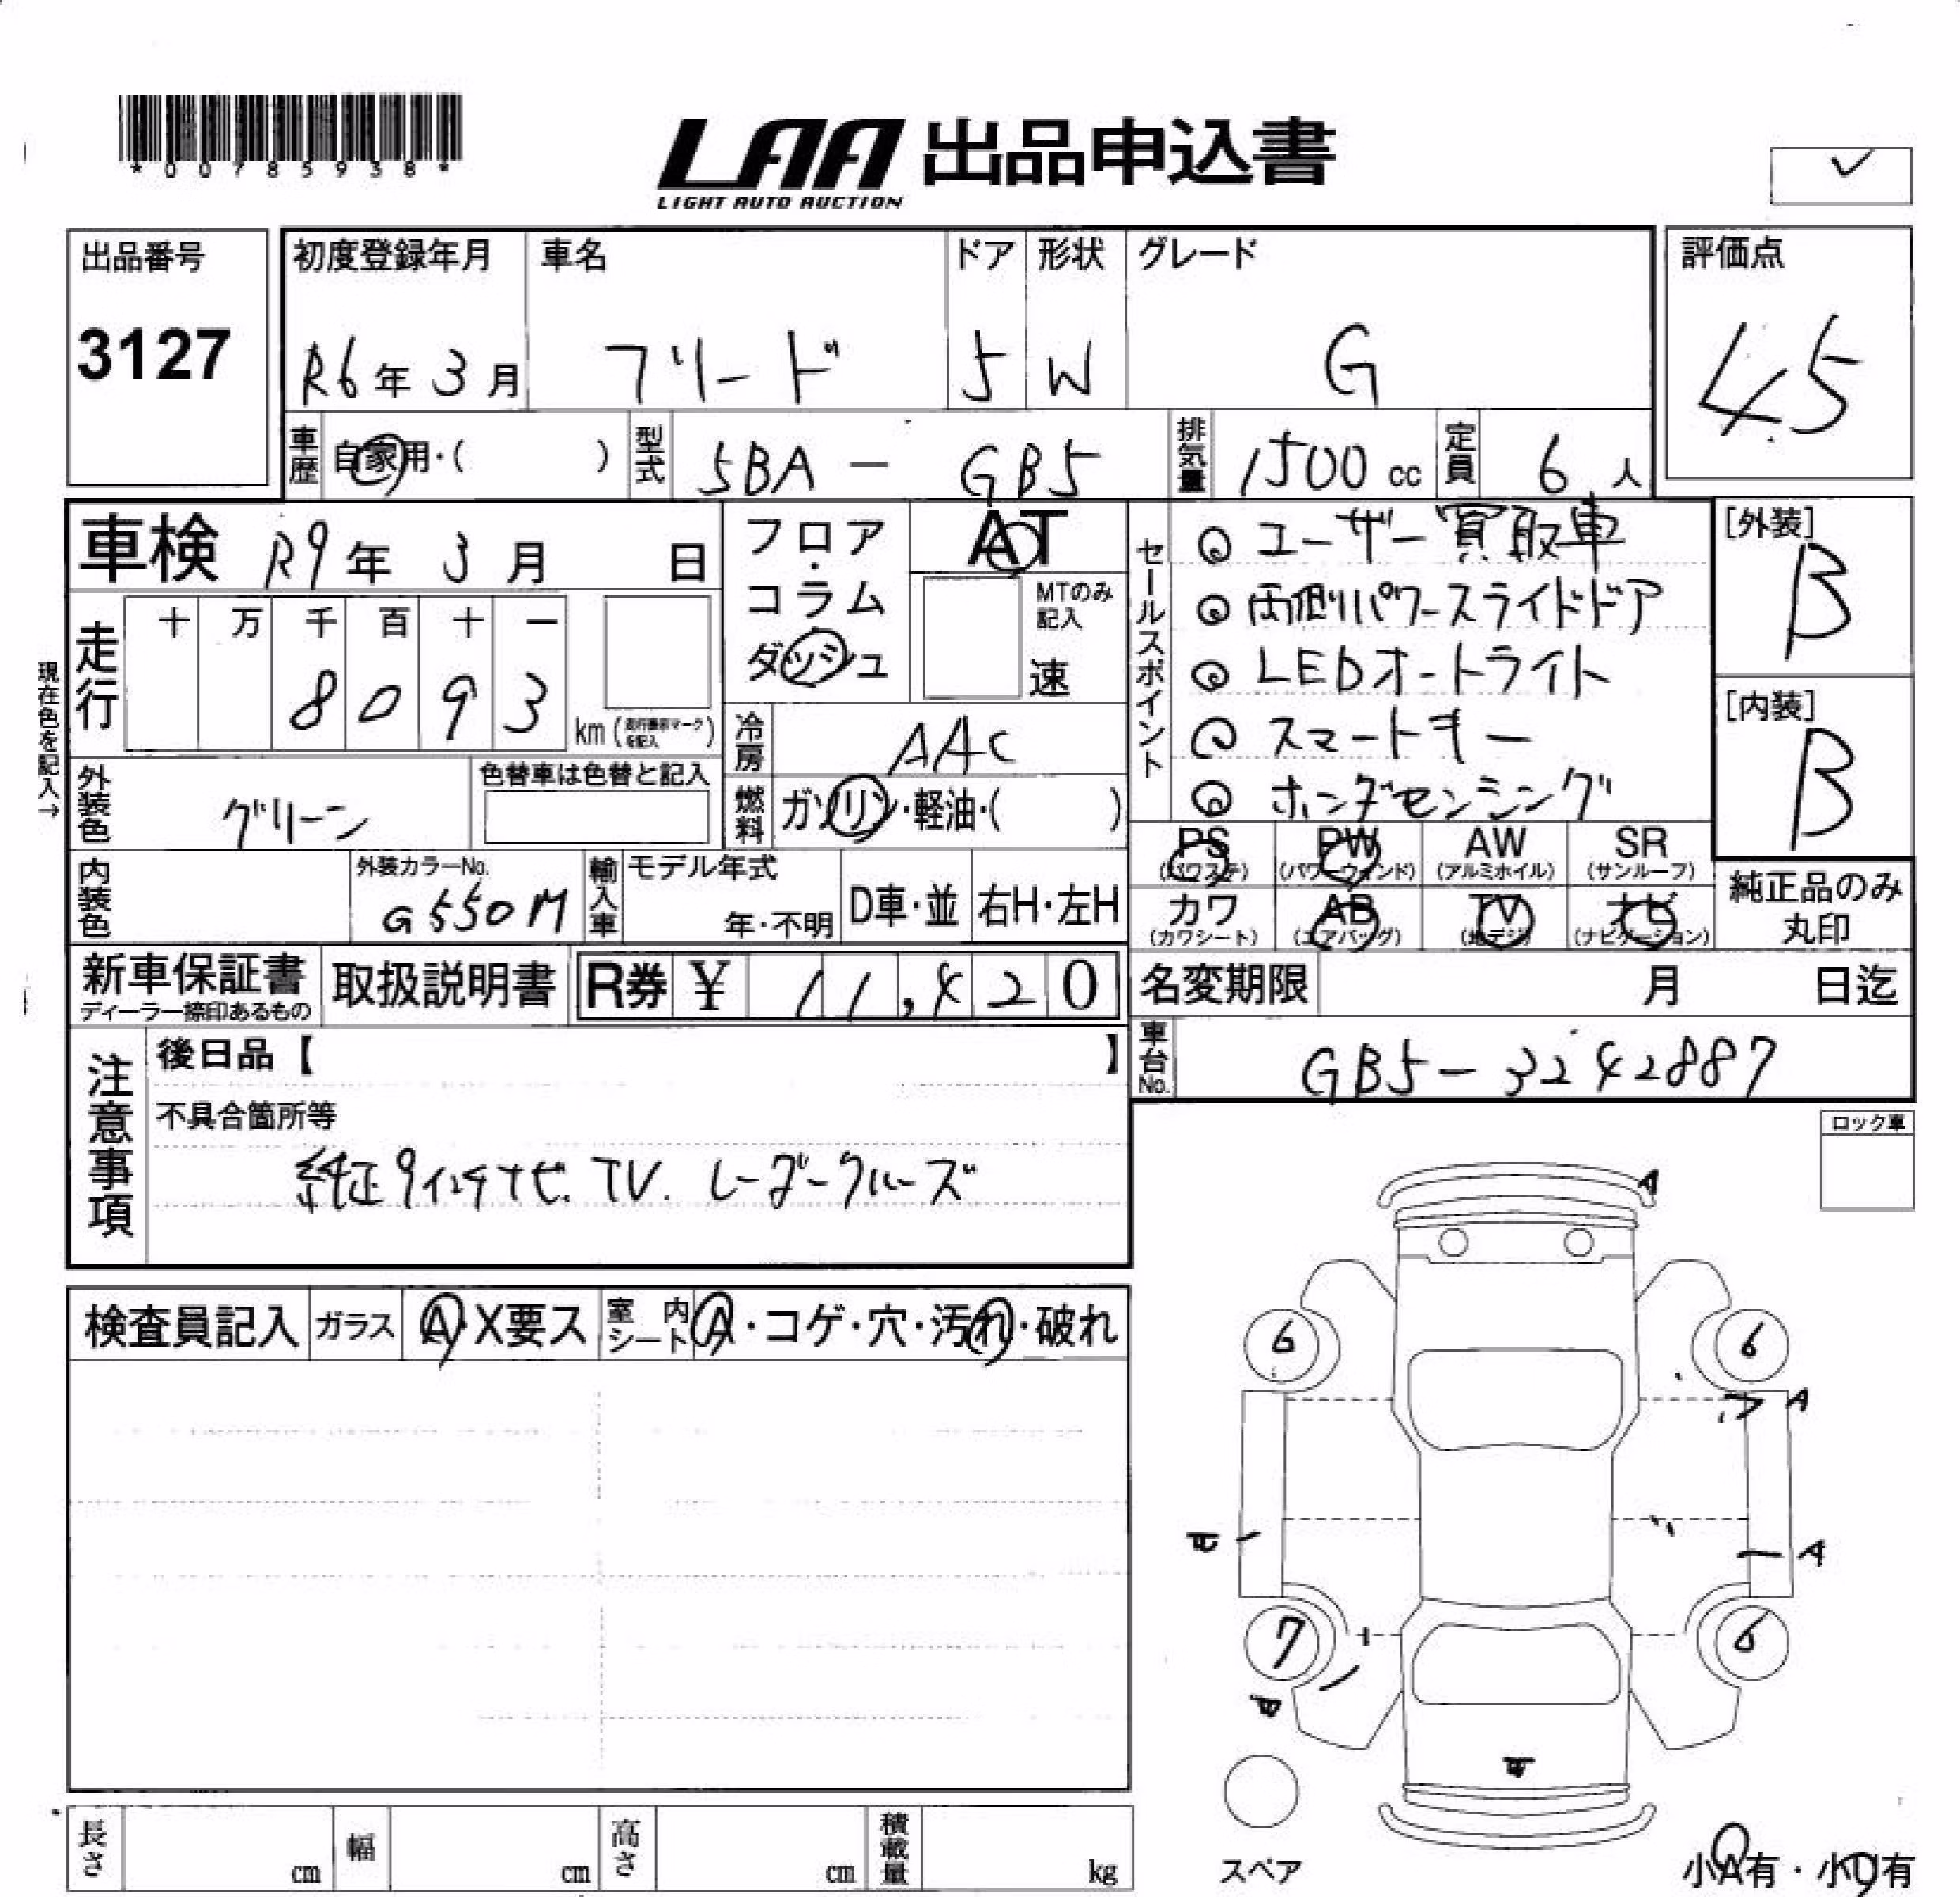 *00785938*
LAA 出品申込書
LIGHT AUTO AUCTION
出品番号
3127
初度登録年月 車名 ドア 形状 グレード
R6年 3月 フリード 5 W G
評価点
4.5
車歴 自家用・( ) 型式 5BA - GB5 排気量 1500cc 定員 6人
車検 R9年 3月 日
フロア・コラム ダッシュ
AT
MTのみ記入
速
セールスポイント
ユーザー買取車
両側パワースライドドア
LEDオートライト
スマートキー
ホンダセンシング
[外装]
B
[内装]
B
現在色を記入→
走行 十 万 千 百 十 一
8 0 9 3 km(走行表示マークを記入)
冷房 AAC
燃料 ガソリン・軽油・( )
外装色 グリーン 色替車は色替と記入
内装色 外装カラーNo. G550M
輸入車 モデル年式 年・不明 D車・並 右H・左H
PS (パワステ) PW (パワーウインド) AW (アルミホイル) SR (サンルーフ)
カワ (カワシート) AB (エアバッグ) TV (地デジ) ナビ (ナビゲーション)
純正品のみ丸印
新車保証書 ディーラー捺印あるもの 取扱説明書 R券 ¥ 11,420
名変期限 月 日迄
車台No. GB5-3242887
注意事項
後日品【 】
不具合箇所等
純正9インチナビ. TV. レーダークルーズ
ロック車
検査員記入 ガラス A・X要ス 室内シート A・コゲ・穴・汚れ・破れ
A
6 6
A
A
7 6
スペア
小A有・小U有
長さ cm 幅 cm 高さ cm 積載量 kg